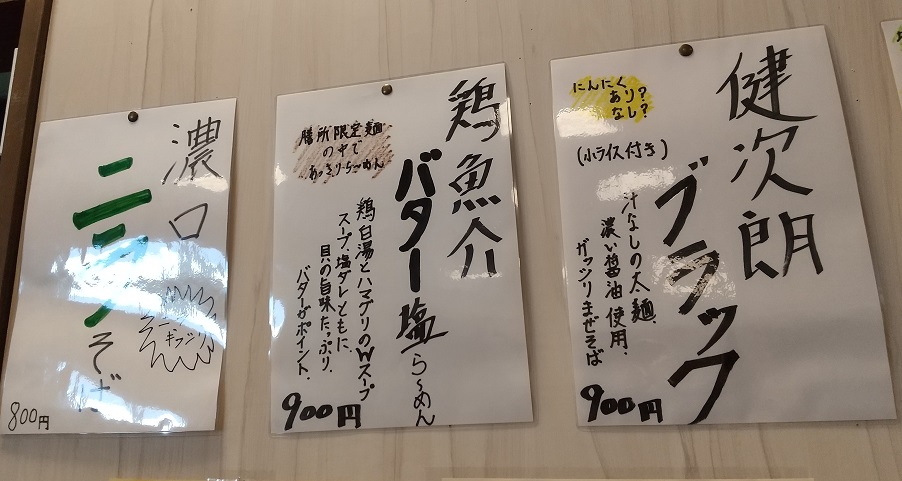 濃口
そば
800円
鶏魚介
バター塩ら〜めん
膳所限定麺
の中で
あっさりら〜めん
鶏白湯とハマグリのWスープ
スープ、塩ダレともに、
貝の旨味たっぷり、
バターがポイント、
900円
健次朗
ブラック
にんにく
あり?
なし?
(小ライス付き)
汁なしの太麺、
濃い醤油使用、
ガッツリまぜそば
900円